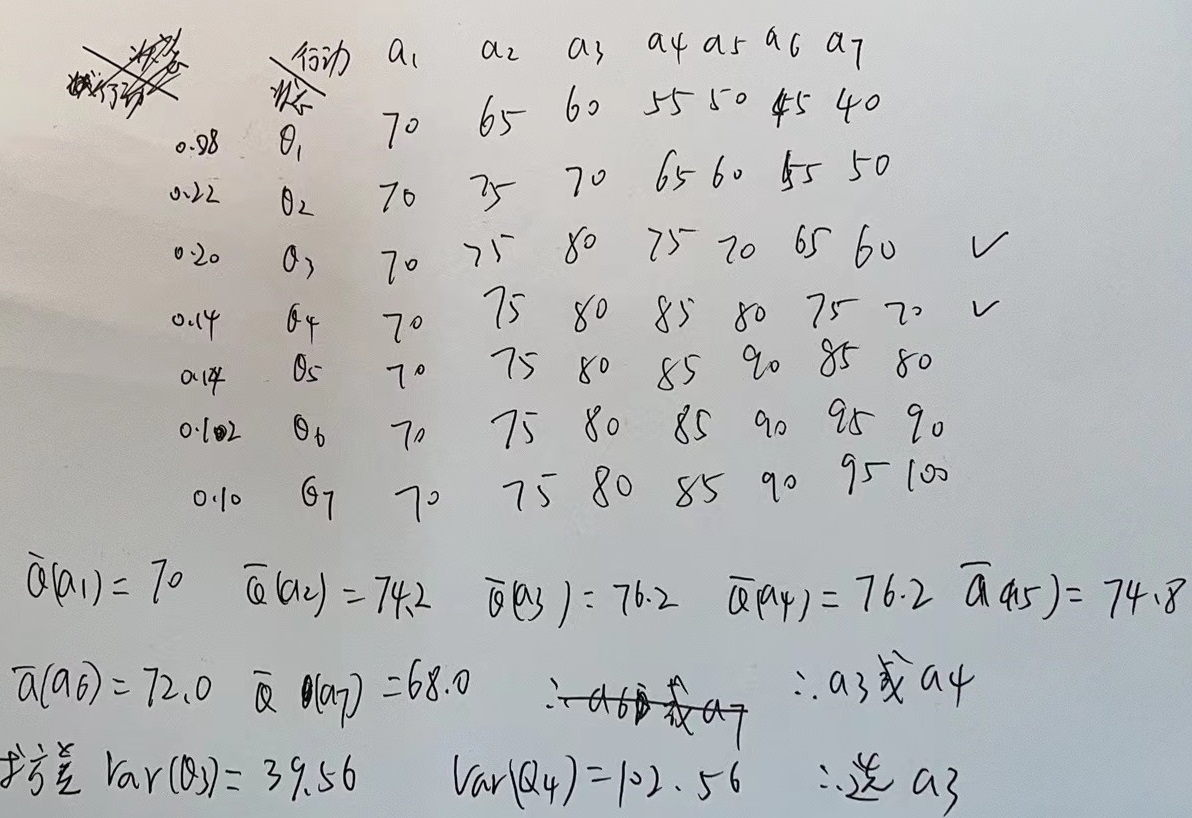 行动 a1 a2 a3 a4 a5 a6 a7
状态
0.08 θ1 70 65 60 55 50 45 40
0.22 θ2 70 75 70 65 60 55 50
0.20 θ3 70 75 80 75 70 65 60 ✓
0.14 θ4 70 75 80 85 80 75 70 ✓
0.14 θ5 70 75 80 85 90 85 80
θ6 70 75 80 85 90 95 90
0.10 θ7 70 75 80 85 90 95 100
Q̄(a1) = 70 Q̄(a2) = 74.2 Q̄(a3) = 76.2 Q̄(a4) = 76.2 Q̄(a5) = 74.8
Q̄(a6) = 72.0 Q̄(a7) = 68.0 ∴ a6或a7 ∴a3或a4
求方差 Var(Q3) = 39.56 Var(Q4) = 102.56 ∴选 a3